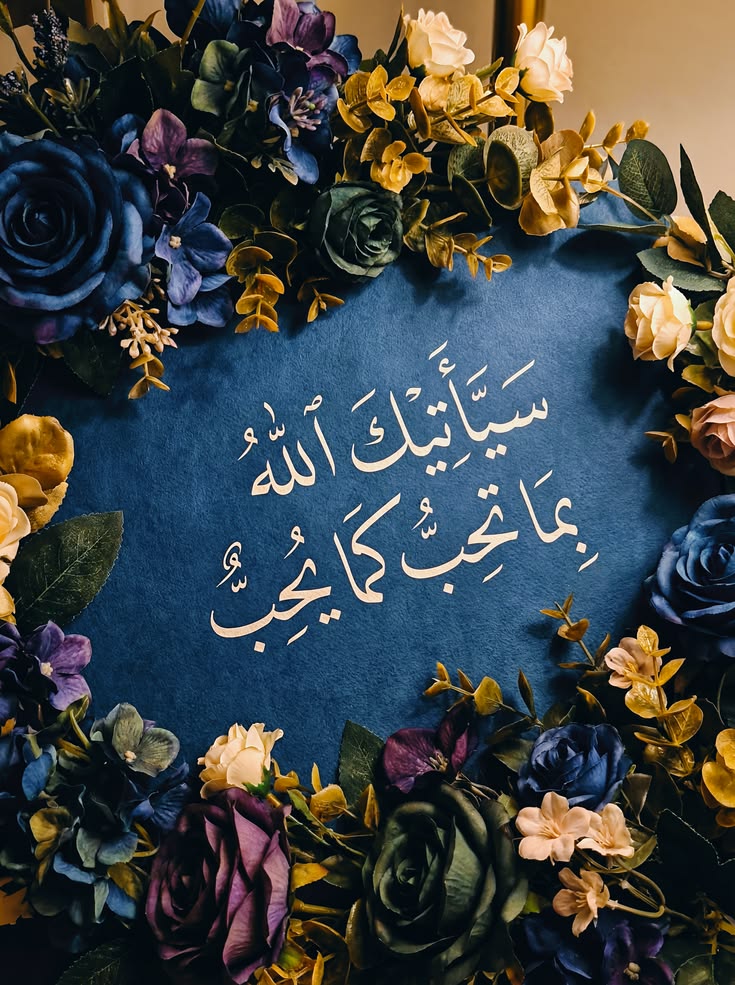 سَيَأْتِيْكَ اللهُ
بِمَا تُحِبُّ كَمَا يُحِبُّ